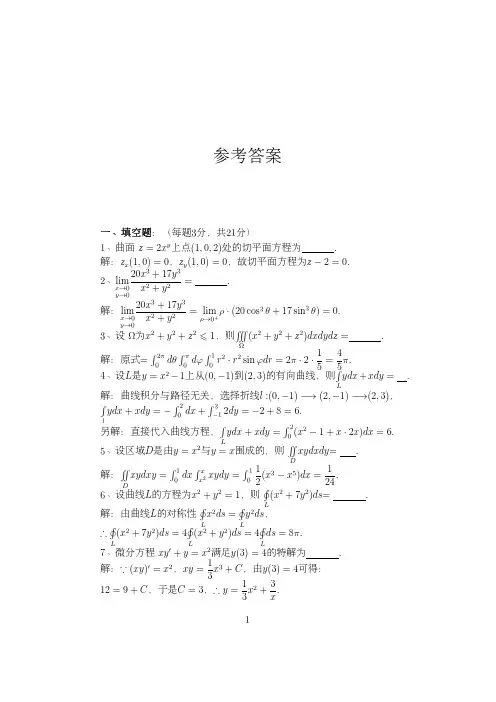 参考答案
一、填空题：（每题3分，共21分）
1、曲面 z = 2x^y上点(1, 0, 2)处的切平面方程为 ____ .
解：z_x(1, 0) = 0，z_y(1, 0) = 0，故切平面方程为z − 2 = 0.
2、lim_{x→0 y→0} (20x³ + 17y³)/(x² + y²) = ____ .
解：lim_{x→0 y→0} (20x³ + 17y³)/(x² + y²) = lim_{ρ→0⁺} ρ · (20 cos³ θ + 17 sin³ θ) = 0.
3、设 Ω为x² + y² + z² ⩽ 1，则∭_Ω (x² + y² + z²)dxdydz = ____ .
解：原式= ∫_0^{2π} dθ ∫_0^π dφ ∫_0^1 r² · r² sin φdr = 2π · 2 · 1/5 = 4/5 π.
4、设L是y = x² − 1上从(0, −1)到(2, 3)的有向曲线，则∫_L ydx + xdy = __ .
解：曲线积分与路径无关，选择折线l :(0, −1) ⟶ (2, −1) ⟶(2, 3)，
∫_l ydx + xdy = − ∫_0^2 dx + ∫_{−1}^3 2dy = −2 + 8 = 6.
另解：直接代入曲线方程，∫_L ydx + xdy = ∫_0^2 (x² − 1 + x · 2x)dx = 6.
5、设区域D是由y = x²与y = x围成的，则 ∬_D xydxdy= __ .
解：∬_D xydxdy = ∫_0^1 dx ∫_{x²}^x xydy = ∫_0^1 1/2 (x³ − x⁵)dx = 1/24.
6、设曲线L的方程为x² + y² = 1，则 ∮_L (x² + 7y²)ds= ____ .
解：由曲线L的对称性 ∮_L x²ds = ∮_L y²ds，
∴ ∮_L (x² + 7y²)ds = 4∮_L (x² + y²)ds = 4∮_L ds = 8π.
7、微分方程 xy′ + y = x²满足y(3) = 4的特解为 ____ .
解：∵ (xy)′ = x²，xy = 1/3 x³ + C，由y(3) = 4可得：
12 = 9 + C，于是C = 3，∴ y = 1/3 x² + 3/x.
1